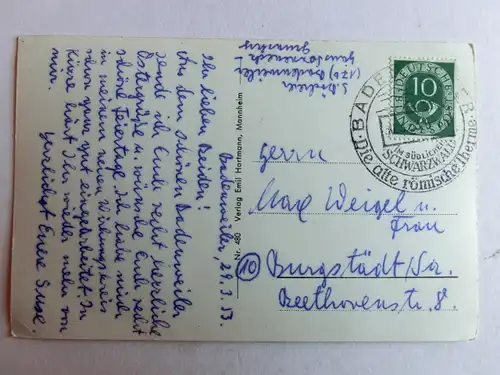 Badenweiler, 29.3.53
Ihr lieben Beiden!
Aus dem schönen Badenweiler
sende ich Euch recht herzliche
Ostergrüße u. wünsche Euch recht
schöne Feiertage. Ich habe mich
in meinem neuen Wirkungskreis
schon ganz gut eingearbeitet. In
Kürze hört Ihr wieder mehr von
mir.
Herzlichst Eure Suse.
(17b) Badenweiler
Nr. 480 Verlag Emil Hartmann, Mannheim
DEUTSCHE BUNDESPOST
10
BADENWEILER
IM SÜDLICHEN
SCHWARZWALD
Die alte römische Therme
Herrn
Max Weigel u.
Frau
(10) Burgstädt/Sa.
Beethovenstr. 8